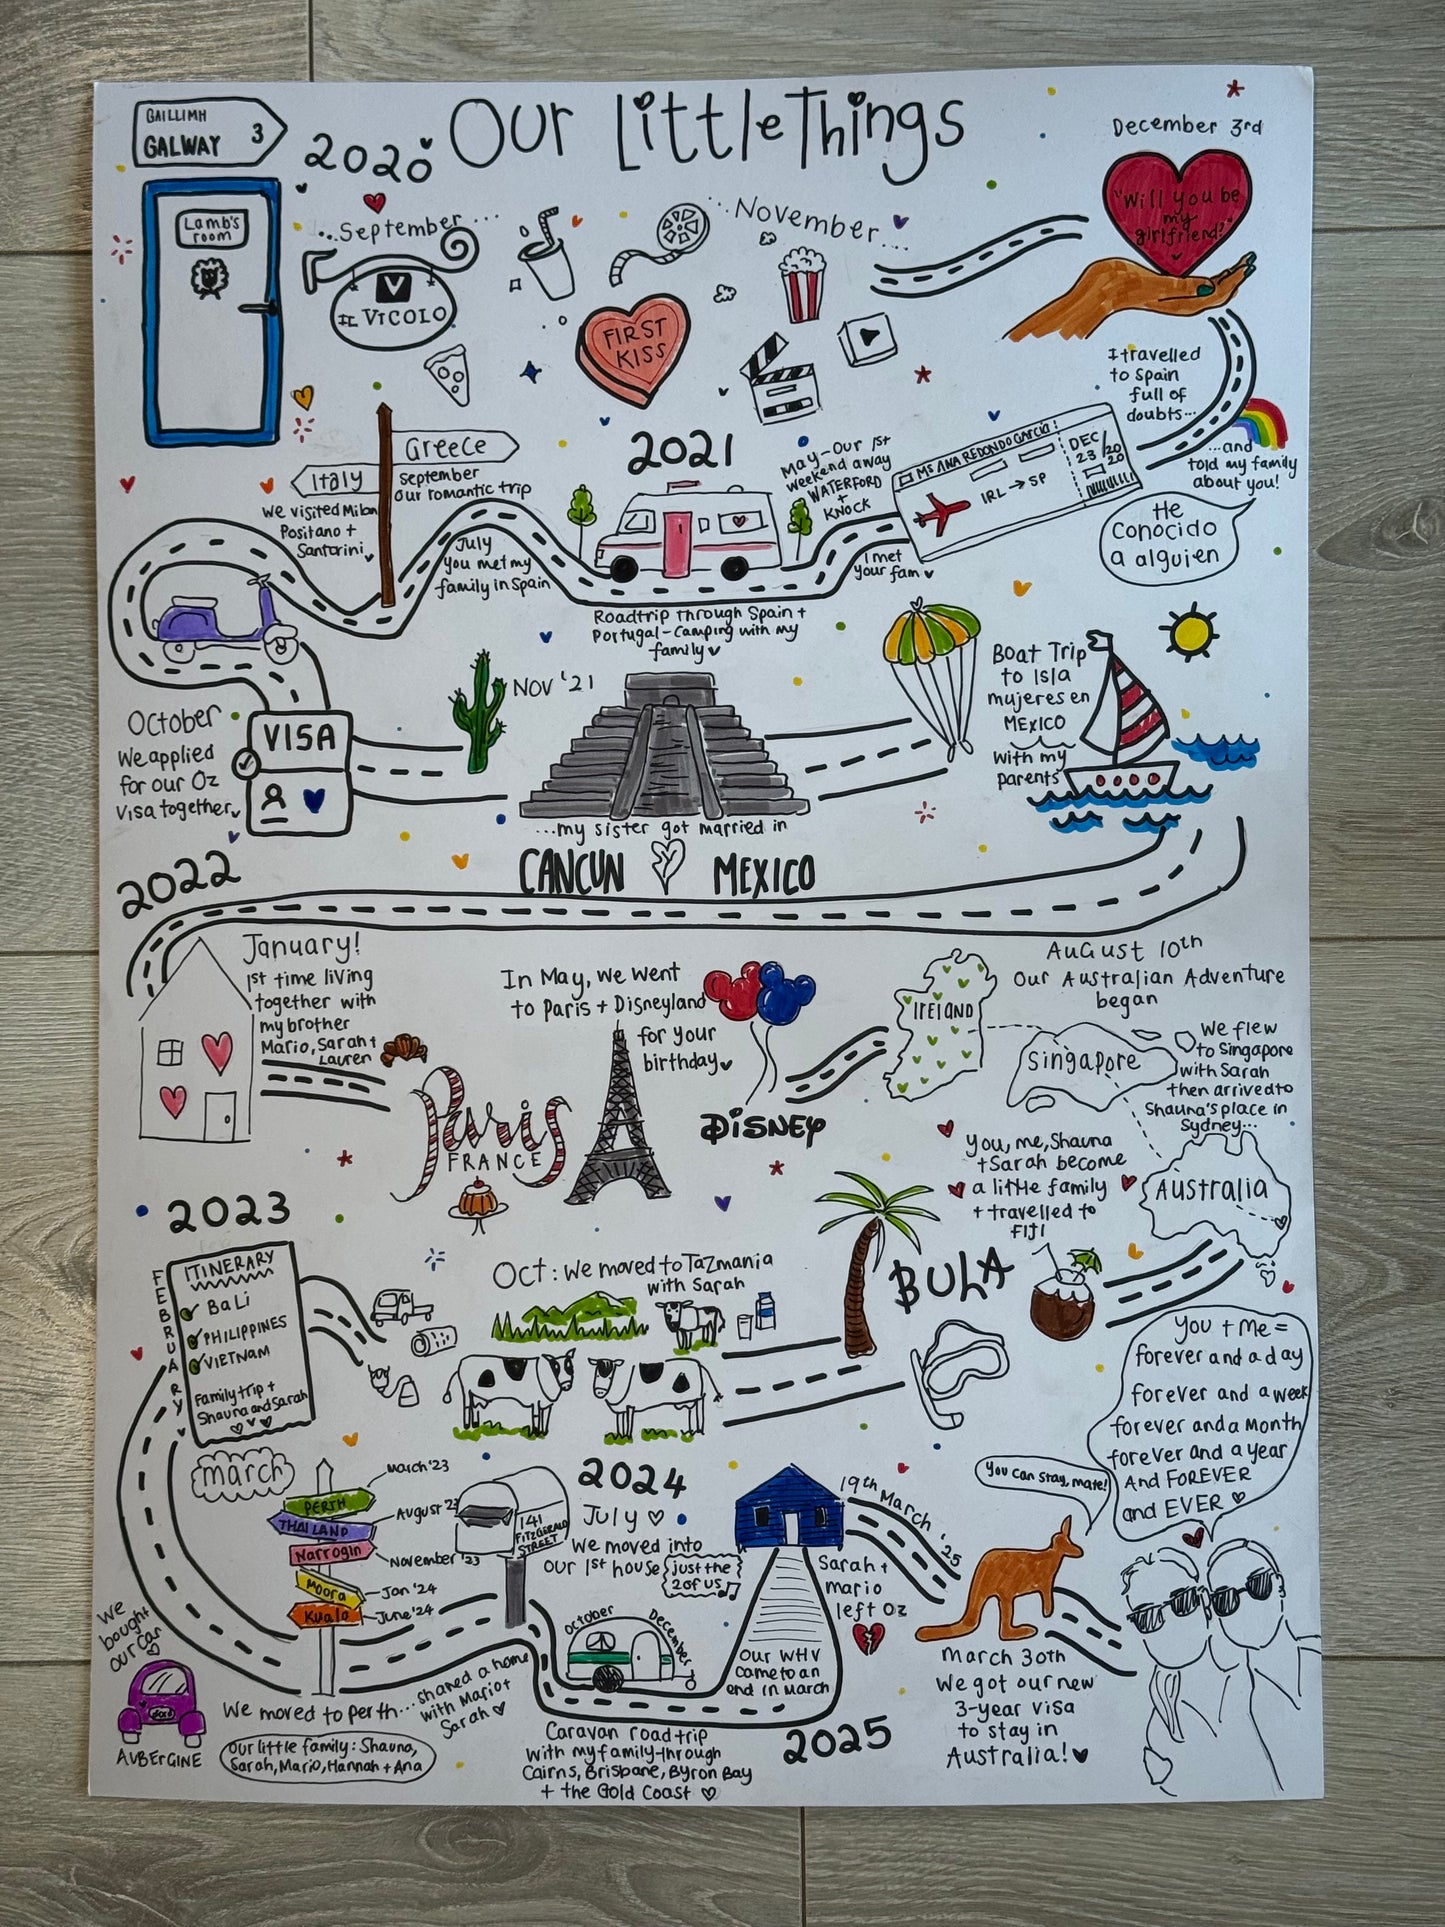 Our Little Things
GAILLIMH
GALWAY 3
2020
Lamb's
room
...September...
V
IL VICOLO
FIRST
KISS
...November...
December 3rd
"Will you be
my
girlfriend?"
I travelled
to Spain
full of
doubts...
...and
told my family
about you!
He
Conocido
a alguien
MS ANA REDONDO GARCIA
DEC
23/20
20
IRL → SP
2021
May - Our 1st
weekend away
WATERFORD
+
KNOCK
I met
your fam
Roadtrip through Spain +
Portugal - Camping with my
family
July
you met my
family in Spain
Greece
September
our romantic trip
Italy
We visited Milan
Positano +
Santorini
October
We applied
for our Oz
Visa together
VISA
Nov '21
...my sister got married in
CANCUN MEXICO
Boat Trip
to Isla
mujeres en
MEXICO
with my
parents
2022
January!
1st time living
together with
my brother
Mario, Sarah +
Lauren
In May, we went
to Paris + Disneyland
for your
birthday
Paris
FRANCE
DISNEY
August 10th
Our Australian Adventure
began
IRELAND
Singapore
We flew
to Singapore
with Sarah
then arrived to
Shauna's place in
Sydney...
AUSTRALIA
You, me, Shauna
+ Sarah become
a little family
+ travelled to
FIJI
BULA
Oct: We moved to Tazmania
with Sarah
2023
FEBRUARY
ITINERARY
BALI
PHILIPPINES
VIETNAM
Family trip +
Shauna and Sarah
march
PERTH
March '23
THAILAND
August 23
Narrogin
November '23
Moora
Jan '24
Kuala
June '24
We
bought
our car
ford
AUBERGINE
We moved to perth... shared a home
with Mario +
Sarah
our little family: Shauna,
Sarah, Mario, Hannah + Ana
141
FITZGERALD
STREET
2024
July
We moved into
our 1st house
just the
2 of us
October December
Caravan road trip
with my family through
Cairns, Brisbane, Byron Bay
+ the Gold Coast
Our WHV
came to an
end in March
2025
19th March '25
Sarah +
mario
left Oz
You can stay, mate!
March 30th
We got our new
3-year visa
to stay in
Australia!
You + me =
forever and a day
forever and a week
forever and a month
forever and a year
And FOREVER
and EVER